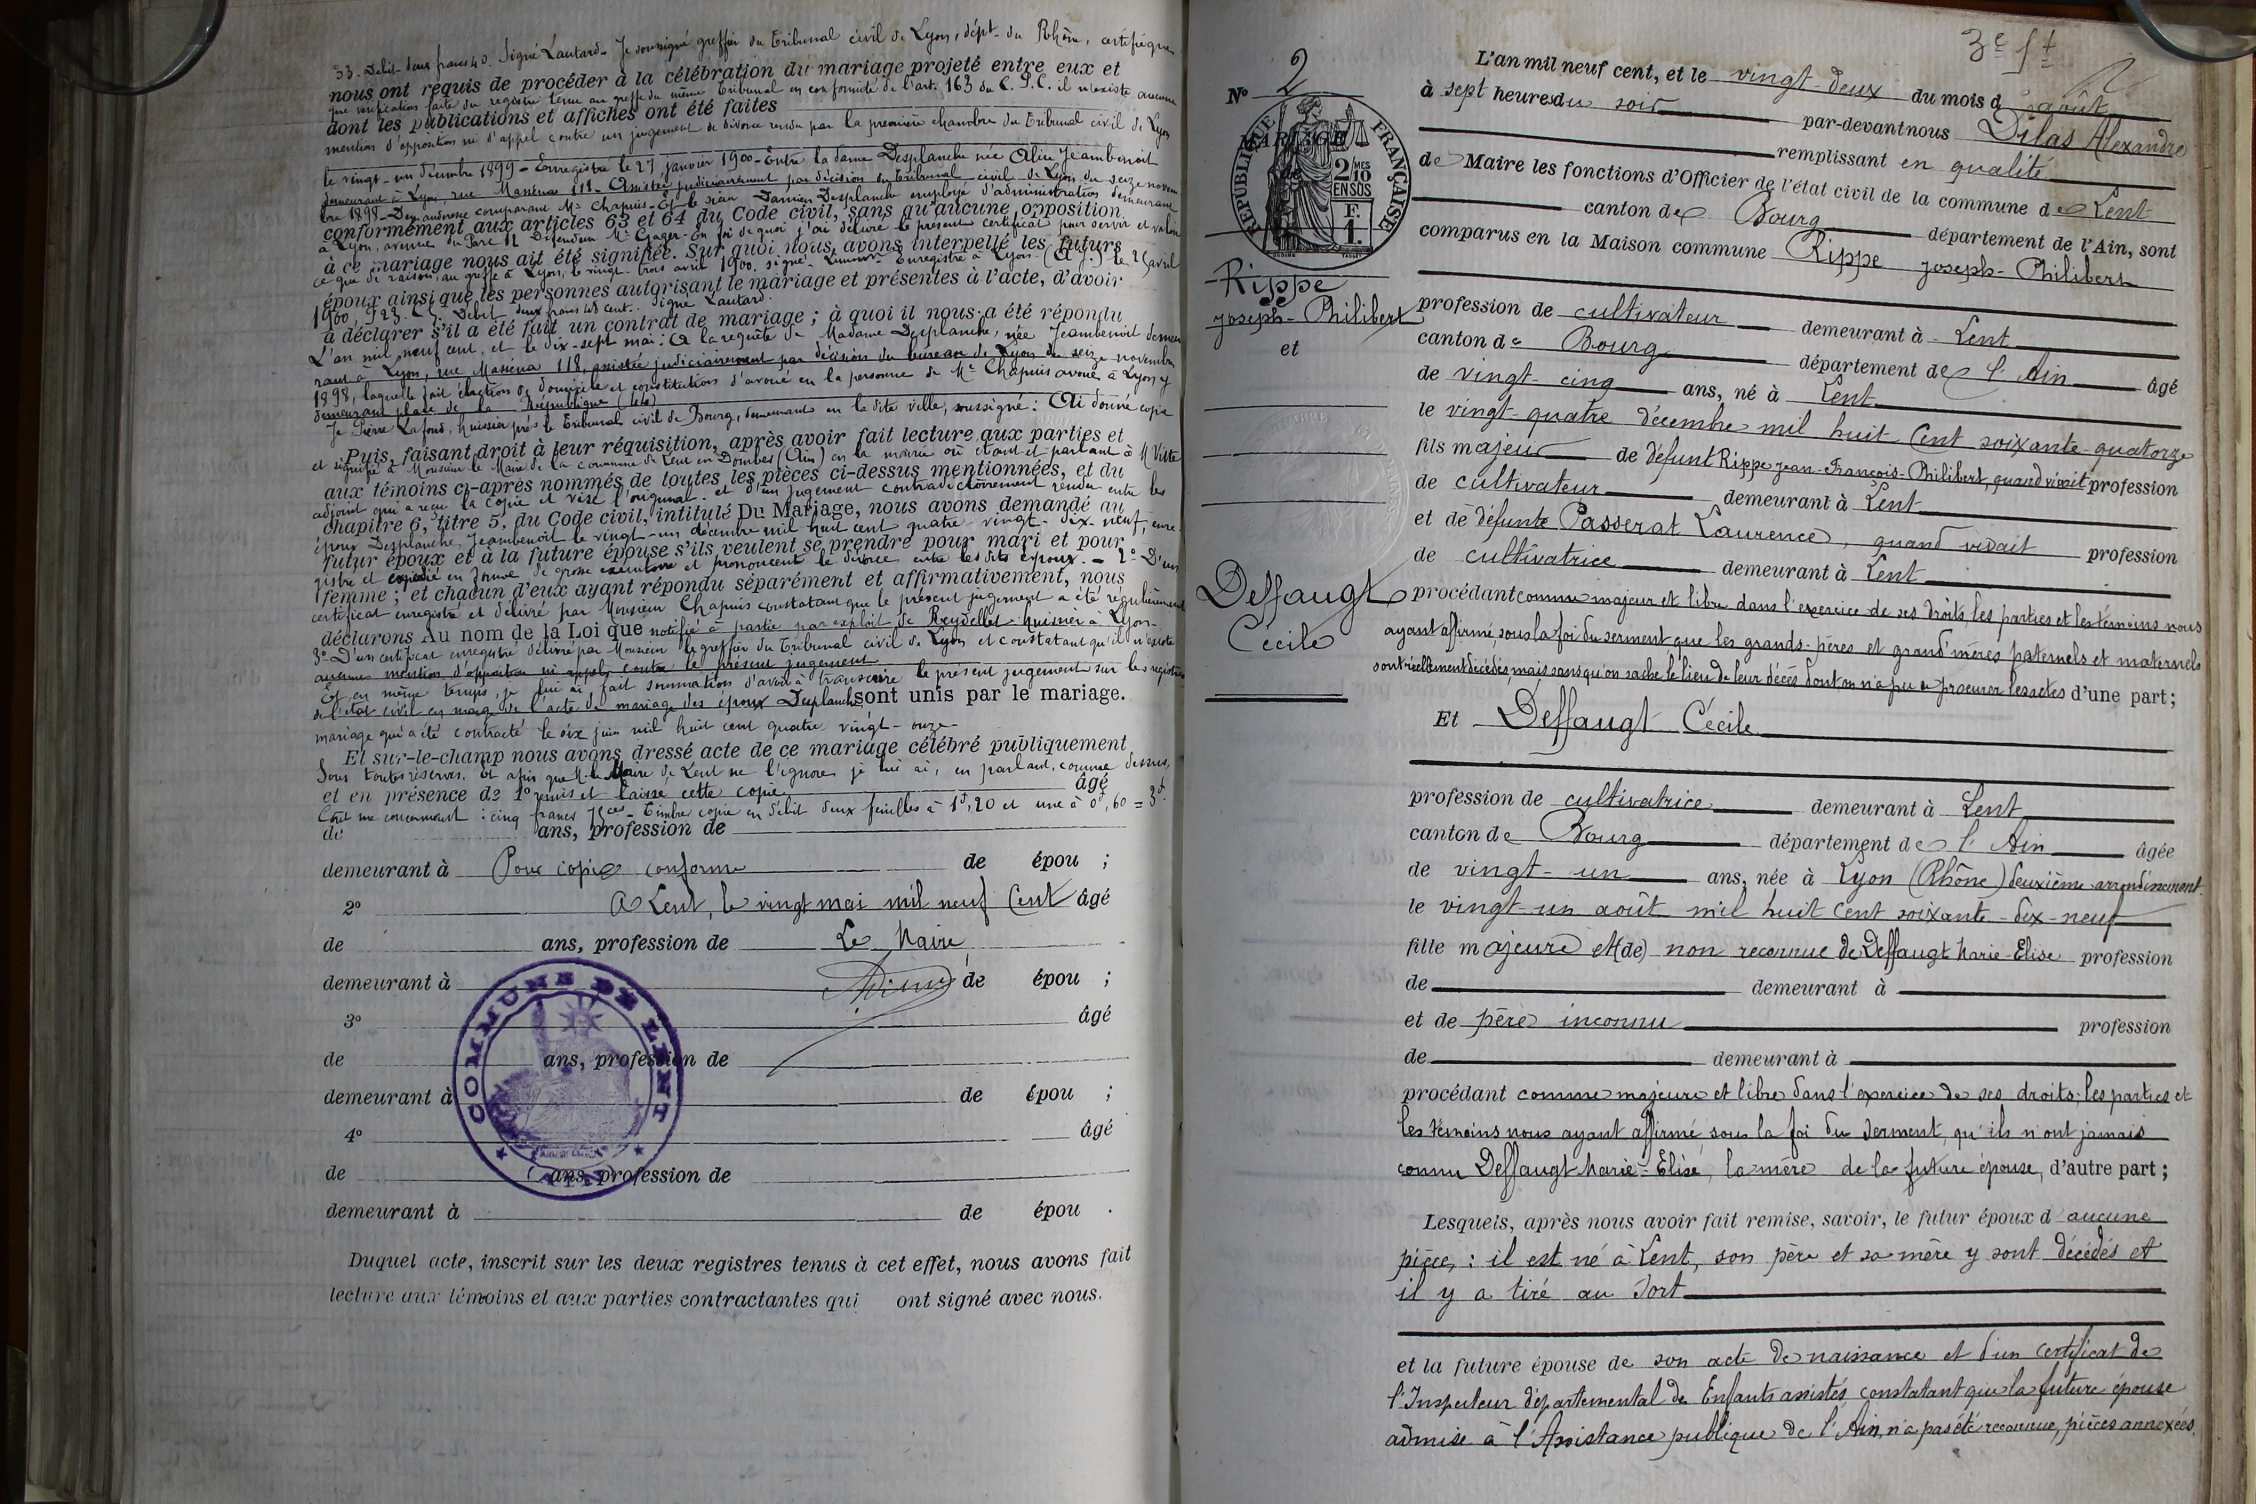 33. Débit deux francs 40. Signé Lautard. Je soussigné greffier du Tribunal civil de Lyon, dépt. du Rhône, certifie que
nous ont requis de procéder à la célébration du mariage projeté entre eux et
que vérification faite du registre tenu au greffe du même Tribunal en conformité de l'art. 163 du C. P. C. il n'existe aucune
dont les publications et affiches ont été faites
mention d'opposition ni d'appel contre un jugement de divorce rendu par la première chambre du Tribunal civil de Lyon
le vingt-un décembre 1899 - Enregistré le 27 janvier 1900 - Entre la dame Desplanche née Alice Jeambenoit
demeurant à Lyon, rue Masséna 118 - Assistée judiciairement par décision du Tribunal civil de Lyon du seize novem
bre 1898 - Demanderesse comparant Me Chapuis - Et le sieur Damien Desplanche employé d'administration demeurant
conformément aux articles 63 et 64 du Code civil, sans qu'aucune opposition
à Lyon, avenue du Parc 12 Défendeur Me - En foi de quoi j'ai délivré le présent certificat pour servir et valoir
à ce mariage nous ait été signifiée. Sur quoi nous avons interpellé les futurs
ce que de raison, au greffe à Lyon, le vingt-trois avril 1900. signé Enregistré à Lyon (A. J.) le 25 avril
époux ainsi que les personnes autorisant le mariage et présentes à l'acte, d'avoir
1900, F° 23. C. 7. Débit deux francs 48 cent. Signé Lautard.
à déclarer s'il a été fait un contrat de mariage ; à quoi il nous a été répondu
L'an mil neuf cent, et le dix-sept mai : A la requête de Madame Desplanche, née Jeambenoit demeu
rant à Lyon, rue Masséna 118, assistée judiciairement par décision du bureau de Lyon du seize novembre
1898, laquelle fait élection de domicile et constitution d'avoué en la personne de Me Chapuis avoué à Lyon y
demeurant place de la République
Je Pierre Lafond, huissier près le Tribunal civil de Bourg, demeurant en la dite ville, soussigné : Ai donné copie
Puis, faisant droit à leur réquisition, après avoir fait lecture aux parties et
et signifié à Monsieur le Maire de la commune de Lent en Dombes (Ain) en la mairie où étant et parlant à M
aux témoins ci-après nommés de toutes les pièces ci-dessus mentionnées, et du
adjoint qui a reçu la copie et visé l'original. et d'un jugement contradictoirement rendu entre les
chapitre 6, titre 5, du Code civil, intitulé Du Mariage, nous avons demandé au
époux Desplanche Jeambenoit le vingt-un décembre mil huit cent quatre vingt-dix-neuf, enre-
futur époux et à la future épouse s'ils veulent se prendre pour mari et pour
gistré et expédié en forme de grosse exécutoire et prononcent le divorce entre les dits époux. - 2° D'un
femme ; et chacun d'eux ayant répondu séparément et affirmativement, nous
certificat enregistré et délivré par Monsieur Chapuis constatant que le présent jugement a été régulièrement
déclarons Au nom de la Loi que notifié à partie par exploit de Reydellet huissier à Lyon -
3° D'un certificat enregistré délivré par Monsieur le greffier du Tribunal civil de Lyon et constatant qu'il n'existe
aucune mention d'opposition ni appel contre le présent jugement
Et en même temps, je lui ai fait sommation d'avoir à transcrire le présent jugement sur les registres
de l'état civil en marge de l'acte de mariage des époux Desplanche sont unis par le mariage.
mariage qui a été contracté le six juin mil huit cent quatre vingt-onze -
Et sur-le-champ nous avons dressé acte de ce mariage célébré publiquement
Sous toutes réserves. Et afin que M. le Maire de Lent ne l'ignore je lui ai, en parlant, comme dessus,
et en présence de 1° remis et laissé cette copie. âgé
Coût me concernant : cinq francs Timbre copie en débit deux feuilles à 1f,20 et une à 0f,60 = 3f.
de ans, profession de
demeurant à Pour copie conforme de épou ;
2° A Lent, le vingt mai mil neuf cent âgé
de ans, profession de Le Maire
demeurant à de épou ;
3° âgé
de ans, profession de
demeurant à de épou ;
4° âgé
de ans, profession de
demeurant à de épou .
COMMUNE DE LENT
(AIN)
Duquel acte, inscrit sur les deux registres tenus à cet effet, nous avons fait
lecture aux témoins et aux parties contractantes qui ont signé avec nous.
3e ft
N° 2
MARIAGE
de
RÉPUBLIQUE FRANÇAISE
2 MES
10
EN SUS
F.
1.
Rippe
Joseph-Philibert
et
Deffaugt
Cécile
L'an mil neuf cent, et le vingt-deux du mois d août
à sept heures du soir par-devant nous Dilas Alexandre
remplissant en qualité
de Maire les fonctions d'Officier de l'état civil de la commune de Lent
canton de Bourg département de l'Ain, sont
comparus en la Maison commune Rippe Joseph-Philibert
profession de cultivateur demeurant à Lent
canton de Bourg département de l'Ain âgé
de vingt-cinq ans, né à Lent
le vingt-quatre décembre mil huit cent soixante-quatorze
fils majeur de défunt Rippe Jean-François-Philibert, quand vivait profession
de cultivateur demeurant à Lent
et de défunte Passerat Laurence, quand vivait profession
de cultivatrice demeurant à Lent
procédant comme majeur et libre dans l'exercice de ses droits, les parties et les témoins nous
ayant affirmé, sous la foi du serment que les grands-pères et grand'mères paternels et maternels
sont réellement décédés, mais sans qu'on sache le lieu de leur décès dont on n'a pu se procurer les actes d'une part ;
Et Deffaugt Cécile
profession de cultivatrice demeurant à Lent
canton de Bourg département de l'Ain âgée
de vingt-un ans, née à Lyon (Rhône) deuxième arrondissement
le vingt-un août mil huit cent soixante-dix-neuf
fille majeure et (de) non reconnue de Deffaugt Marie-Elise profession
de demeurant à
et de père inconnu profession
de demeurant à
procédant comme majeure et libre dans l'exercice de ses droits ; les parties et
les témoins nous ayant affirmé sous la foi du serment, qu'ils n'ont jamais
connu Deffaugt Marie-Elise, la mère de la future épouse, d'autre part ;
Lesquels, après nous avoir fait remise, savoir, le futur époux d'aucune
pièce, : il est né à Lent, son père et sa mère y sont décédés et
il y a tiré au sort
et la future épouse de son acte de naissance et d'un certificat de
l'Inspecteur départemental des Enfants assistés constatant que la future épouse
admise à l'Assistance publique de l'Ain, n'a pas été reconnue, pièces annexées.